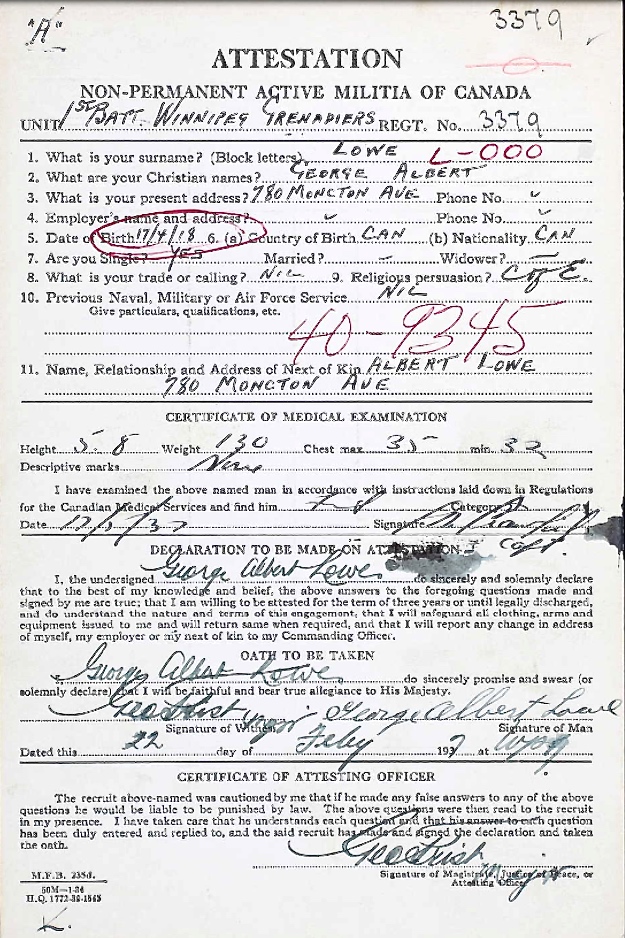 "A" 3379
ATTESTATION
NON-PERMANENT ACTIVE MILITIA OF CANADA
UNIT 1ST BATT. WINNIPEG GRENADIERS REGT. No. 3379
1. What is your surname? (Block letters) LOWE L-000
2. What are your Christian names? GEORGE ALBERT
3. What is your present address? 780 MONCTON AVE Phone No.
4. Employer's name and address? Phone No.
5. Date of Birth 17/4/18 6. (a) Country of Birth CAN (b) Nationality CAN
7. Are you Single? YES Married? – Widower? –
8. What is your trade or calling? NIL 9. Religious persuasion? C of E.
10. Previous Naval, Military or Air Force Service NIL
Give particulars, qualifications, etc.
40-9345
11. Name, Relationship and Address of Next of Kin ALBERT LOWE
780 MONCTON AVE
CERTIFICATE OF MEDICAL EXAMINATION
Height 5. 8 Weight 130 Chest max 35 min. 32
Descriptive marks
I have examined the above named man in accordance with instructions laid down in Regulations
for the Canadian Medical Services and find him Category
Date Signature
Capt.
DECLARATION TO BE MADE ON ATTESTATION
I, the undersigned George Albert Lowe do sincerely and solemnly declare
that to the best of my knowledge and belief, the above answers to the foregoing questions made and
signed by me are true; that I am willing to be attested for the term of three years or until legally discharged,
and do understand the nature and terms of this engagement, that I will safeguard all clothing, arms and
equipment issued to me and will return same when required, and that I will report any change in address
of myself, my employer or my next of kin to my Commanding Officer.
OATH TO BE TAKEN
George Albert Lowe do sincerely promise and swear (or
solemnly declare) that I will be faithful and bear true allegiance to His Majesty.
George Albert Lowe
Signature of Witness Signature of Man
Dated this 22 day of Feby 1937 at Wpg
CERTIFICATE OF ATTESTING OFFICER
The recruit above-named was cautioned by me that if he made any false answers to any of the above
questions he would be liable to be punished by law. The above questions were then read to the recruit
in my presence. I have taken care that he understands each question and that his answer to each question
has been duly entered and replied to, and the said recruit has made and signed the declaration and taken
the oath.
Signature of Magistrate, Justice of Peace, or
Attesting Officer
M.F.B. 235d.
50M—1-36
H.Q. 1772-39-1565